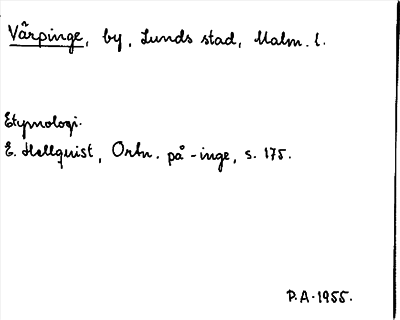 Vårpinge, by, Lunds stad, Malm. l.
Etymologi.
E. Hellquist, Ortn. på -inge, s. 175.
P.A. 1955.